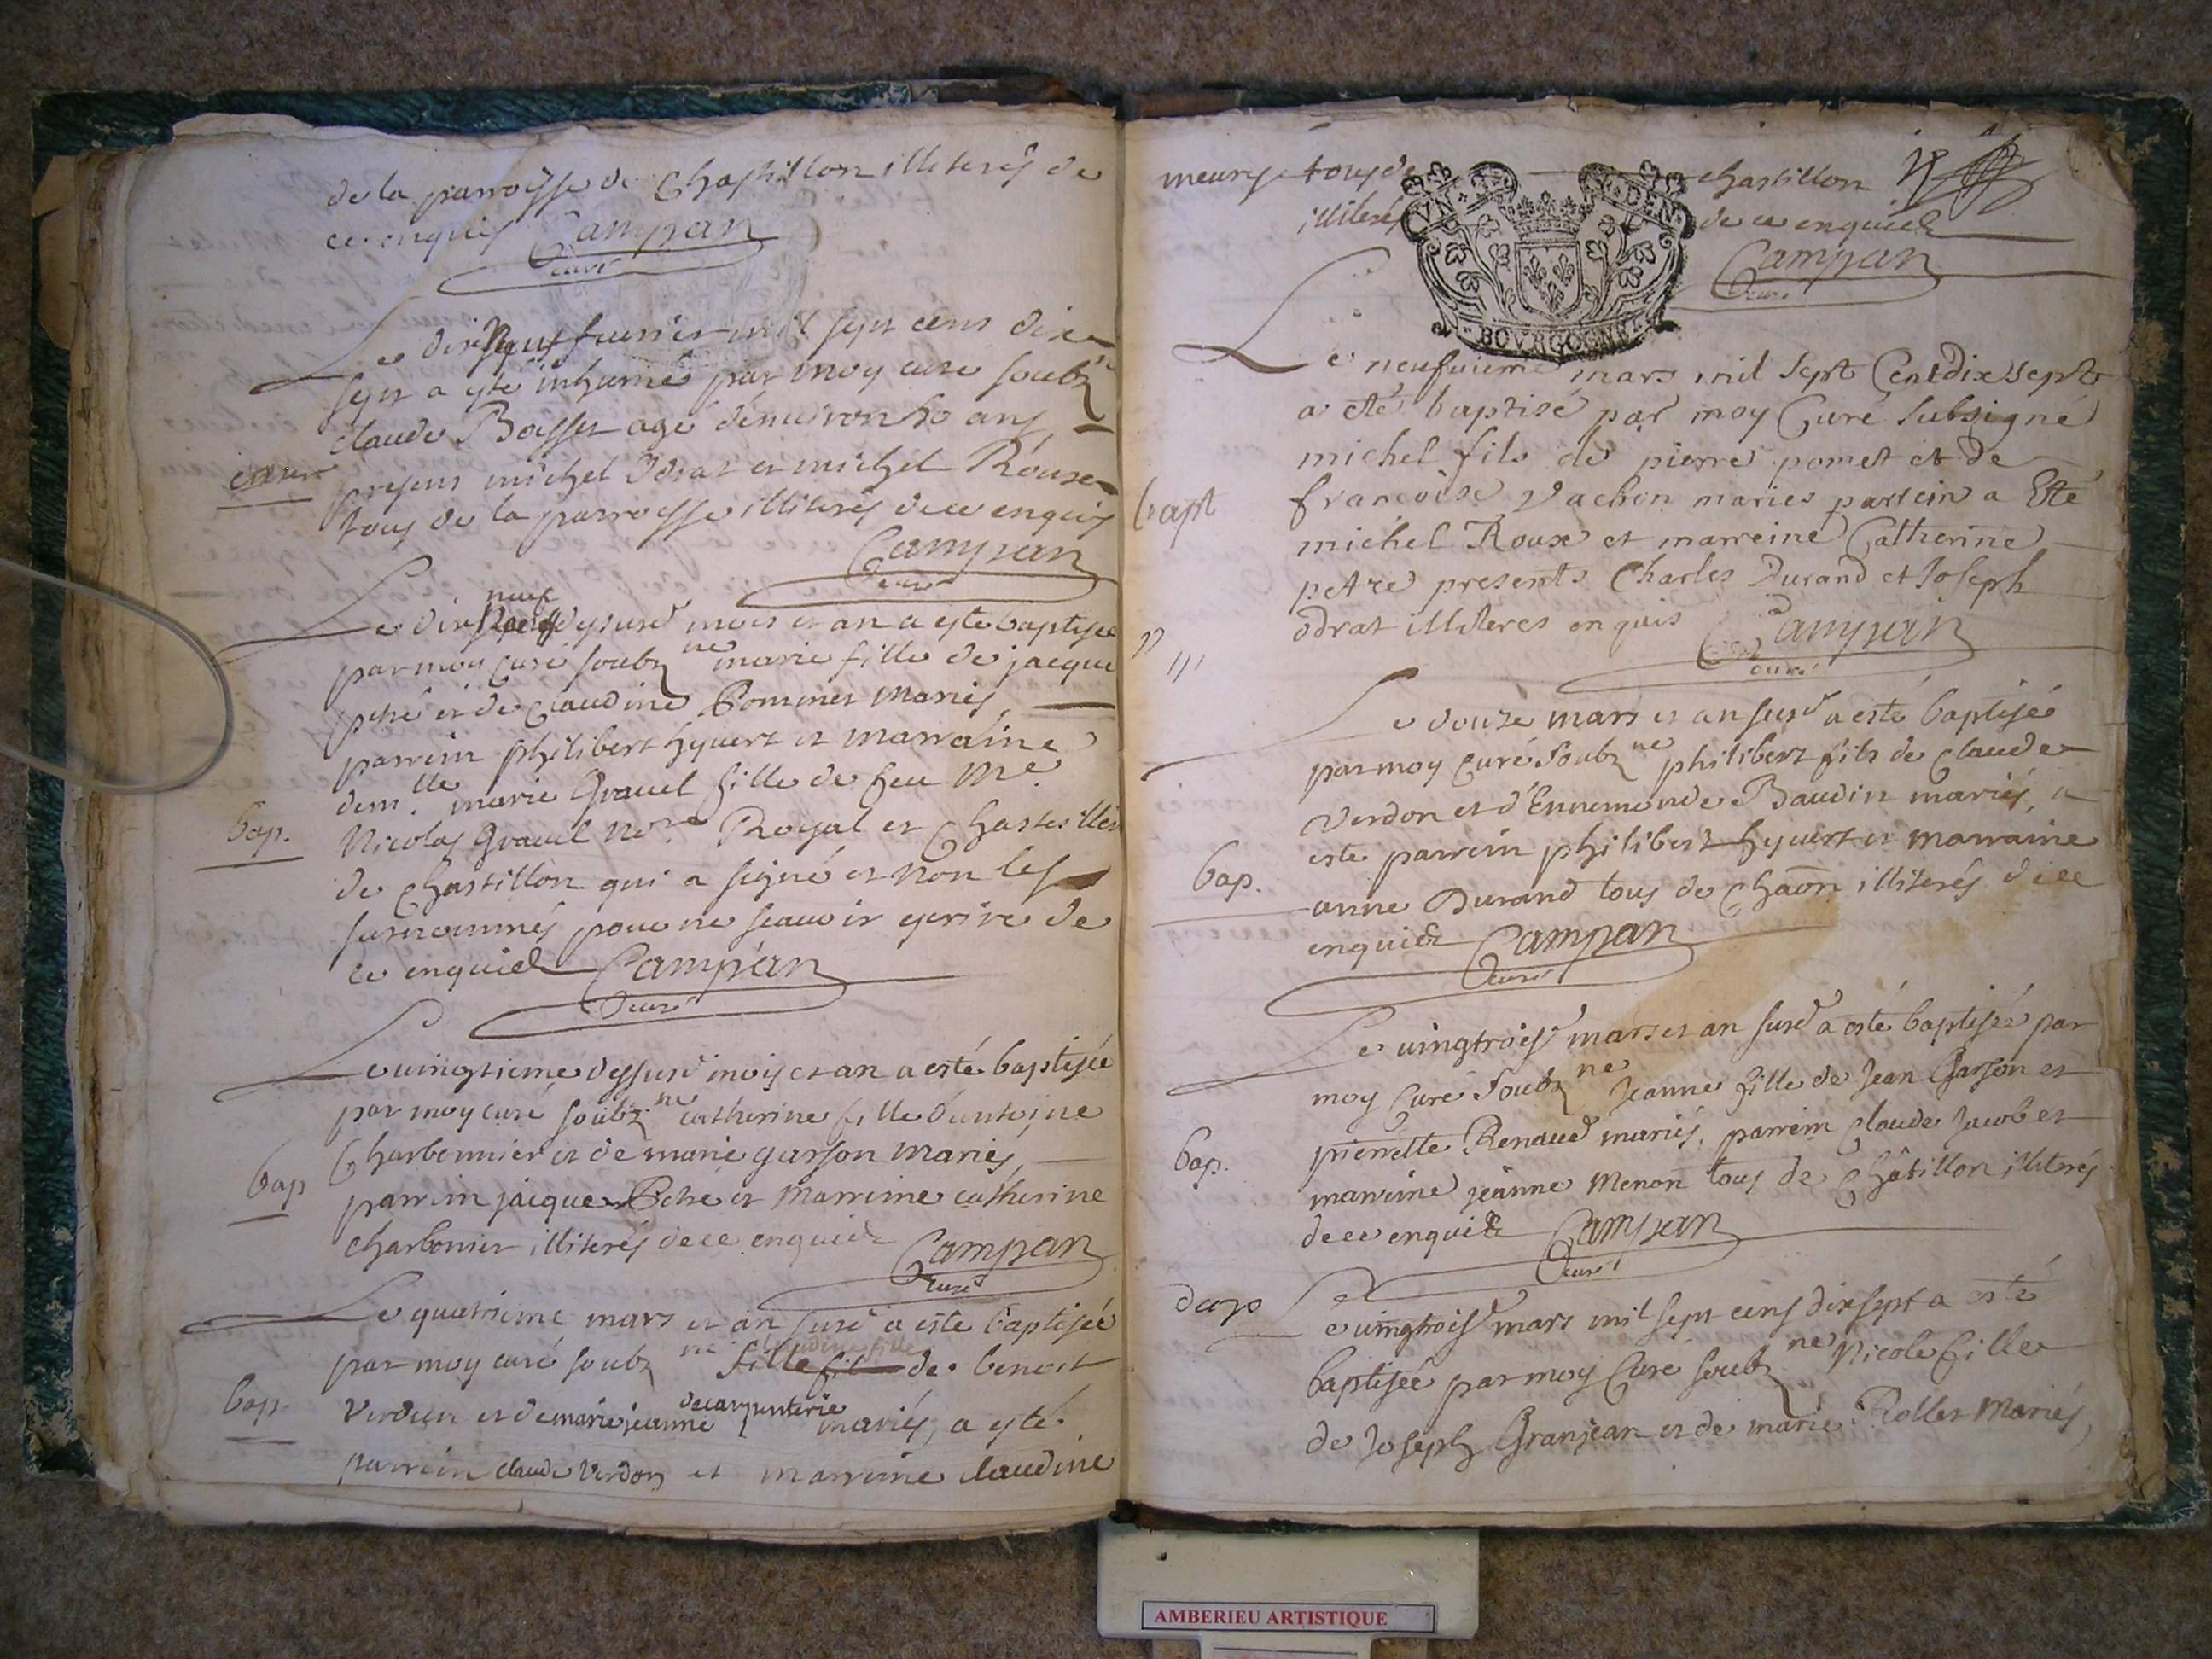 de la parroisse de Chastillon illiterés de
ce enquis Campan
curé
Le dix sept feurier mil sept cens dix
sept a esté inhumé par moy curé soubz
claude Boisset agé d'enuiron 50 ans
presens michel Odrat et michel Roux
tous de la parroisse illiterés de ce enquis
Campan
curé
neuf
Le dix dessusd mois et an a esté baptisée
par moy curé soubz ne marie fille de jacque
petre et de claudine Pommet mariés,
parrein philibert hyuert et marraine
dem.lle marie Grauel fille de feu Me
bap.
Nicolas Grauel No.re Royal et Chastelain
de Chastillon qui a signé et non les
susnommés pour ne scauoir escrire de
ce enquis Campan
curé
Le uingtieme dessusd mois et an a esté baptisée
par moy curé soubz ne catherine fille d'antoine
bap
Charbonnier et de marie garson mariés,
parrein jacque Petre et marreine catherine
charbonier illiterés de ce enquis Campan
curé
Le quatrieme mars et an susd a esté baptisée
ne claudine fille
par moy curé soubz fille fil de benoit
bap.
decarpenterie
Verdun et de marie jeanne mariés, a esté
parrein claude Verdon et marreine claudine
meurge tous de chastillon
illiterés de ce enquis
VN DEN
BOVRGOGNE
Campan
curé
Le neufuieme mars mil sept Cent dix sept
a eté baptisé par moy Curé subsigné
michel fils de pierre pomet et de
bapt
francoise Vachon maries parrein a Eté
michel Roux et marreine Catherine
petre presents Charles Durand et Joseph
odrat illiteres enquis Campan
curé
Le douze mars et an susd a esté baptisée
par moy curé soubz ne philibert fils de claude
Verdon et d'Ennemonde Baudin mariés, a
esté parrein philibert hyuert et marraine
bap.
anne Durand tous de Chaōn illiterés de ce
enquis Campan
curé
Le uingtrois mars et an susd a esté baptisée par
moy Curé soubz ne Jeanne fille de Jean Garson et
bap.
pierrette Renaud mariés, parrein claude Jacob et
marreine jeanne Menon tous de Châtillon illiterés
de ce enquis Campan
curé
Le uingtrois mars mil sept cens dix sept a esté
baptisée par moy Curé soubz ne Nicole fille
de Joseph Granjean et de marie Rollet Mariés,
AMBERIEU ARTISTIQUE